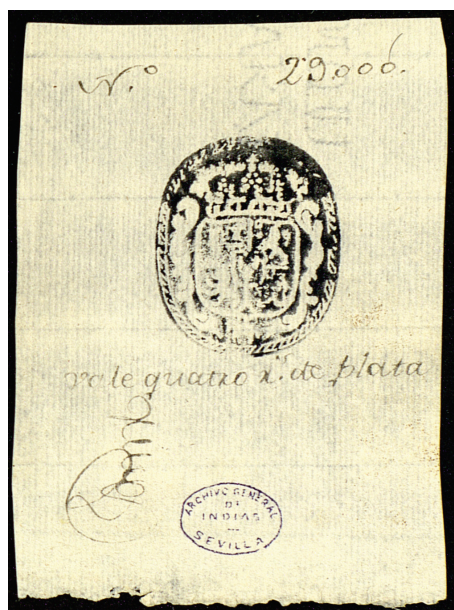 N.º 29000.
vale quatro r.s de plata
ARCHIVO GENERAL
DE
INDIAS
SEVILLA